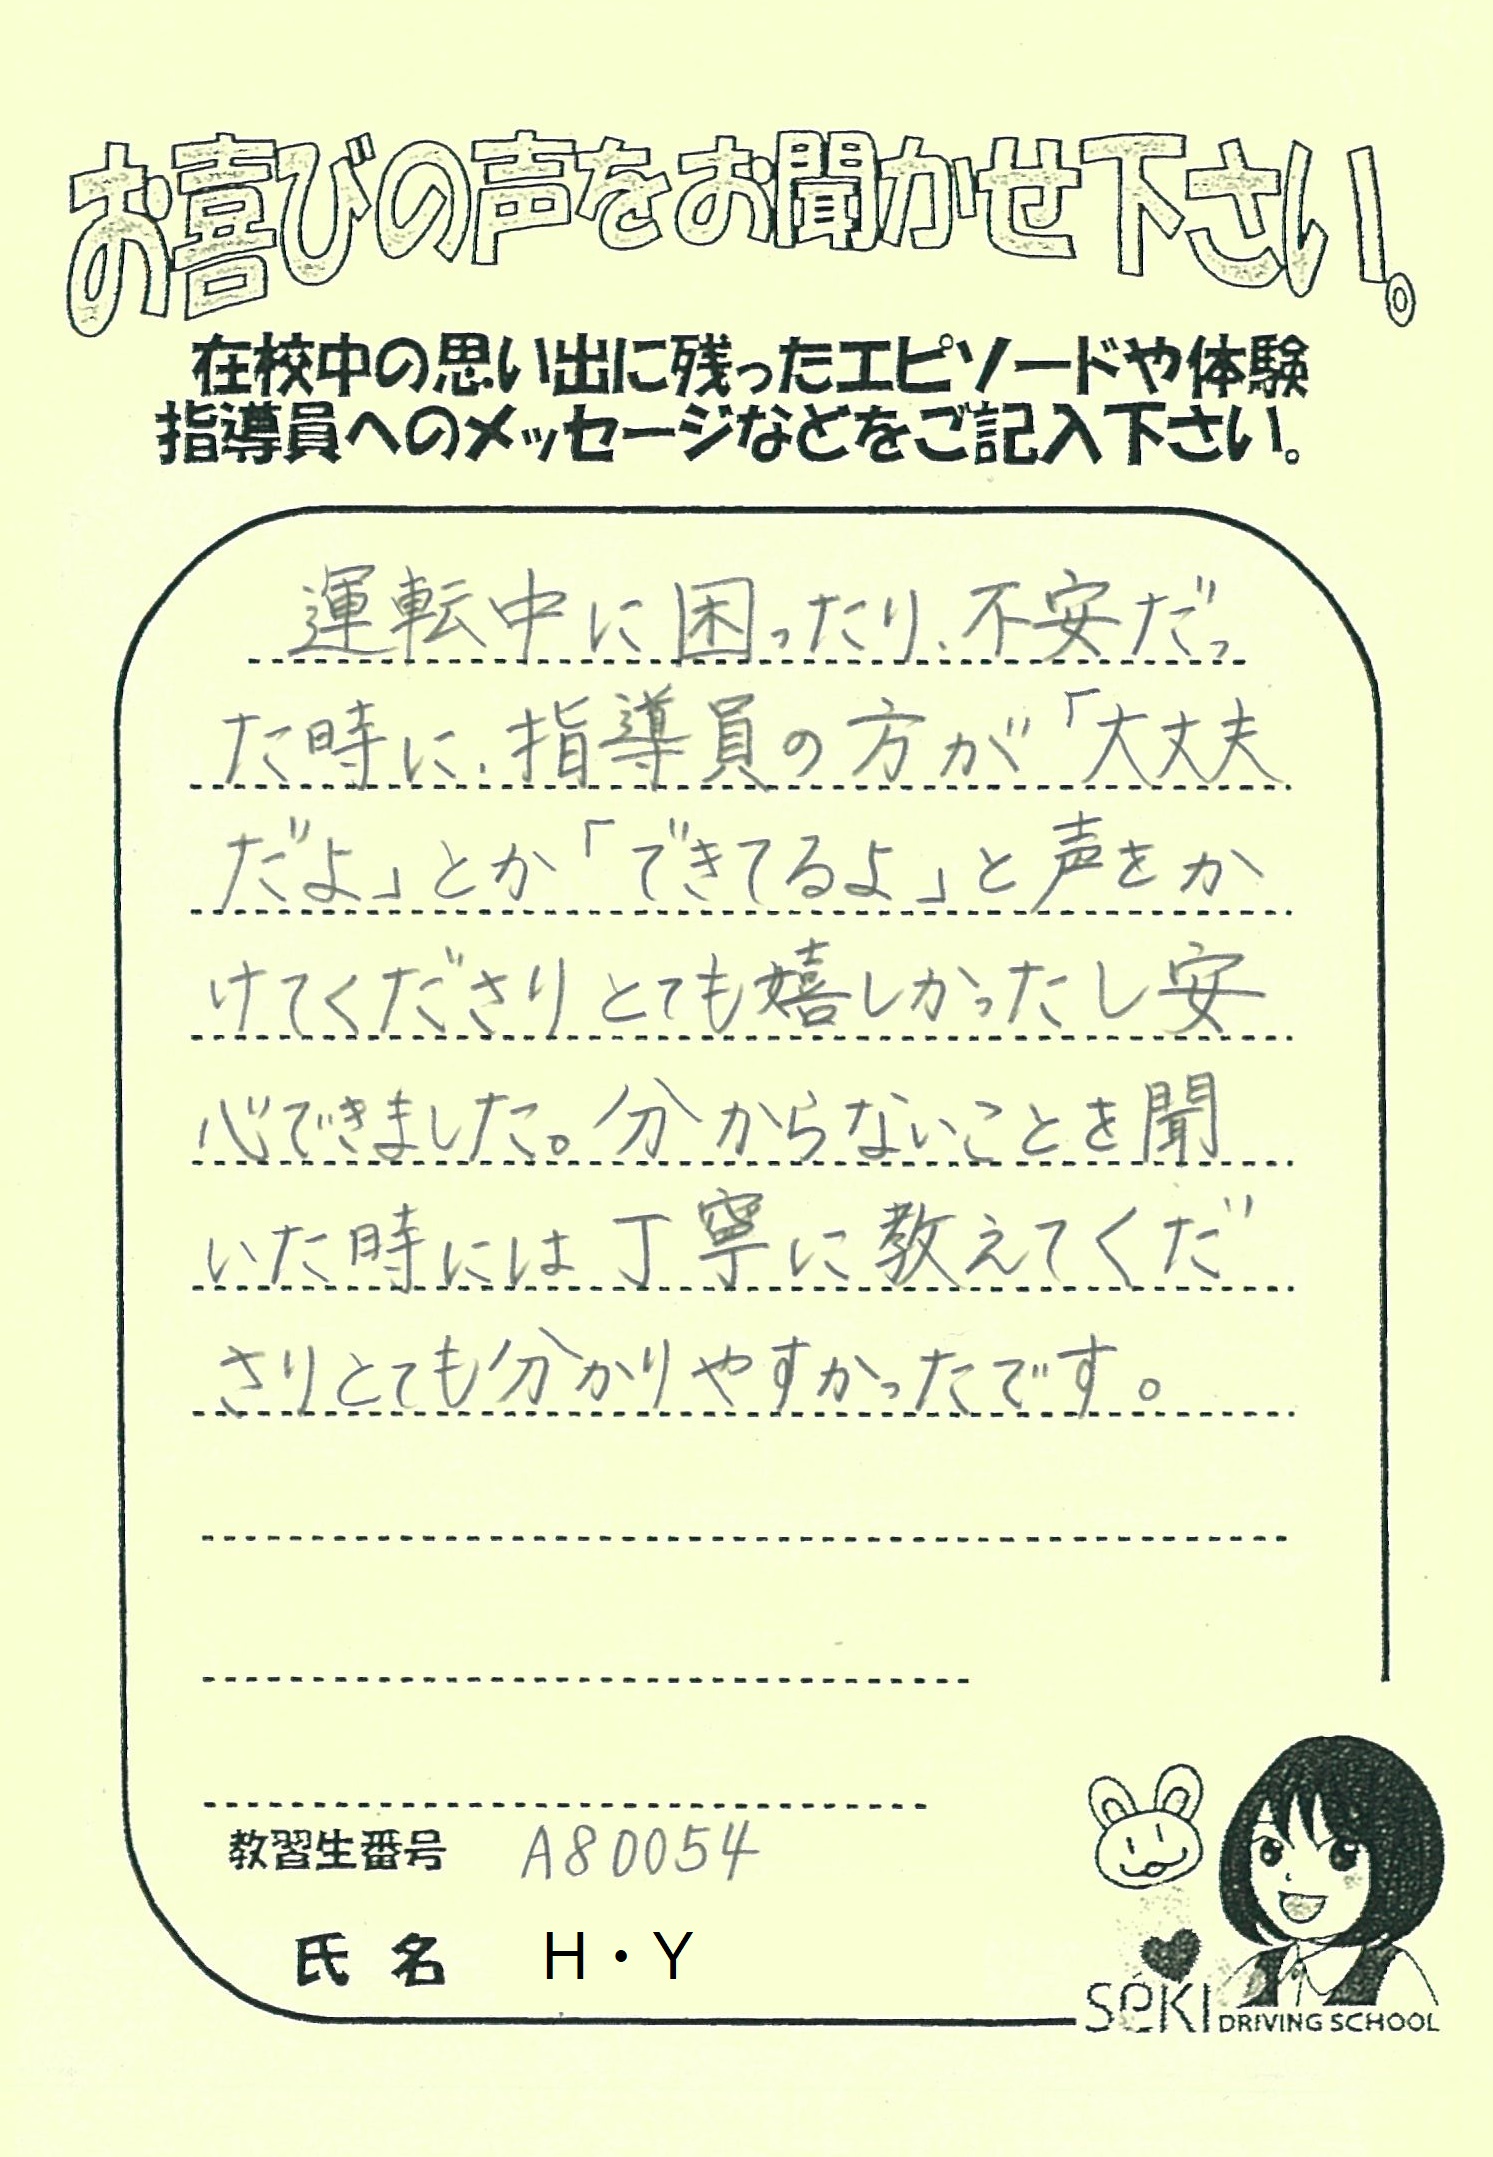 お喜びの声をお聞かせ下さい。
在校中の思い出に残ったエピソードや体験
指導員へのメッセージなどをご記入下さい。
運転中に困ったり、不安だっ
た時に、指導員の方が「大丈夫
だよ」とか「できてるよ」と声をか
けてくださりとても嬉しかったし安
心できました。分からないことを聞
いた時には丁寧に教えてくだ
さりとても分かりやすかったです。
教習生番号 A80054
氏名 H・Y
SeKI DRIVING SCHOOL